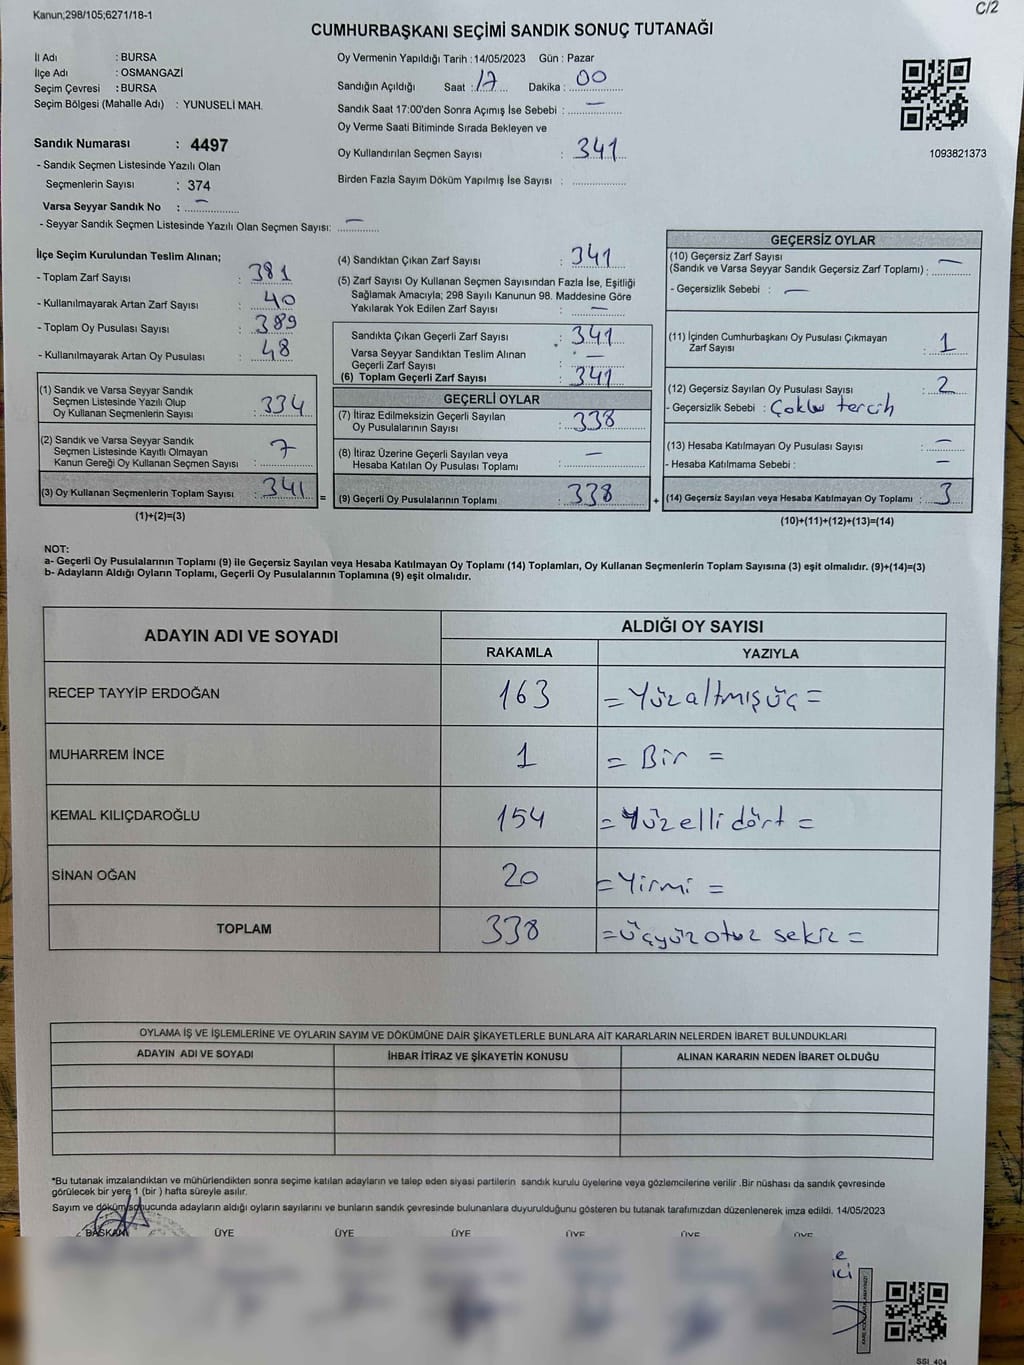 Kanun;298/105;6271/18-1
C/2
CUMHURBAŞKANI SEÇİMİ SANDIK SONUÇ TUTANAĞI
İl Adı : BURSA
İlçe Adı : OSMANGAZİ
Seçim Çevresi : BURSA
Seçim Bölgesi (Mahalle Adı) : YUNUSELİ MAH.
Sandık Numarası : 4497
- Sandık Seçmen Listesinde Yazılı Olan
Seçmenlerin Sayısı : 374
Varsa Seyyar Sandık No : —
- Seyyar Sandık Seçmen Listesinde Yazılı Olan Seçmen Sayısı: —
Oy Vermenin Yapıldığı Tarih : 14/05/2023 Gün : Pazar
Sandığın Açıldığı Saat : 17 Dakika : 00
Sandık Saat 17:00'den Sonra Açımış İse Sebebi : —
Oy Verme Saati Bitiminde Sırada Bekleyen ve
Oy Kullandırılan Seçmen Sayısı : 341
Birden Fazla Sayım Döküm Yapılmış İse Sayısı :
1093821373
İlçe Seçim Kurulundan Teslim Alınan;
- Toplam Zarf Sayısı : 381
- Kullanılmayarak Artan Zarf Sayısı : 40
- Toplam Oy Pusulası Sayısı : 389
- Kullanılmayarak Artan Oy Pusulası : 48
(1) Sandık ve Varsa Seyyar Sandık
Seçmen Listesinde Yazılı Olup
Oy Kullanan Seçmenlerin Sayısı : 334
(2) Sandık ve Varsa Seyyar Sandık
Seçmen Listesinde Kayıtlı Olmayan
Kanun Gereği Oy Kullanan Seçmen Sayısı : 7
(3) Oy Kullanan Seçmenlerin Toplam Sayısı : 341 =
(1)+(2)=(3)
(4) Sandıktan Çıkan Zarf Sayısı : 341
(5) Zarf Sayısı Oy Kullanan Seçmen Sayısından Fazla İse, Eşitliği
Sağlamak Amacıyla; 298 Sayılı Kanunun 98. Maddesine Göre
Yakılarak Yok Edilen Zarf Sayısı : —
Sandıkta Çıkan Geçerli Zarf Sayısı : 341
Varsa Seyyar Sandıktan Teslim Alınan
Geçerli Zarf Sayısı : —
(6) Toplam Geçerli Zarf Sayısı : 341
GEÇERLİ OYLAR
(7) İtiraz Edilmeksizin Geçerli Sayılan
Oy Pusulalarının Sayısı : 338
(8) İtiraz Üzerine Geçerli Sayılan veya
Hesaba Katılan Oy Pusulası Toplamı : —
(9) Geçerli Oy Pusulalarının Toplamı : 338 +
GEÇERSİZ OYLAR
(10) Geçersiz Zarf Sayısı
(Sandık ve Varsa Seyyar Sandık Geçersiz Zarf Toplamı) : —
- Geçersizlik Sebebi : —
(11) İçinden Cumhurbaşkanı Oy Pusulası Çıkmayan
Zarf Sayısı : 1
(12) Geçersiz Sayılan Oy Pusulası Sayısı : 2
- Geçersizlik Sebebi : Çoklu tercih
(13) Hesaba Katılmayan Oy Pusulası Sayısı : —
- Hesaba Katılmama Sebebi : —
(14) Geçersiz Sayılan veya Hesaba Katılmayan Oy Toplamı : 3
(10)+(11)+(12)+(13)=(14)
NOT:
a- Geçerli Oy Pusulalarının Toplamı (9) ile Geçersiz Sayılan veya Hesaba Katılmayan Oy Toplamı (14) Toplamları, Oy Kullanan Seçmenlerin Toplam Sayısına (3) eşit olmalıdır. (9)+(14)=(3)
b- Adayların Aldığı Oyların Toplamı, Geçerli Oy Pusulalarının Toplamına (9) eşit olmalıdır.
ADAYIN ADI VE SOYADI ALDIĞI OY SAYISI
RAKAMLA YAZIYLA
RECEP TAYYİP ERDOĞAN 163 = Yüzaltmışüç =
MUHARREM İNCE 1 = Bir =
KEMAL KILIÇDAROĞLU 154 = Yüzelli dört =
SİNAN OĞAN 20 = Yirmi =
TOPLAM 338 = üçyüz otuz sekiz =
OYLAMA İŞ VE İŞLEMLERİNE VE OYLARIN SAYIM VE DÖKÜMÜNE DAİR ŞİKAYETLERLE BUNLARA AİT KARARLARIN NELERDEN İBARET BULUNDUKLARI
ADAYIN ADI VE SOYADI İHBAR İTİRAZ VE ŞİKAYETİN KONUSU ALINAN KARARIN NEDEN İBARET OLDUĞU
*Bu tutanak imzalandıktan ve mühürlendikten sonra seçime katılan adayların ve talep eden siyasi partilerin sandık kurulu üyelerine veya gözlemcilerine verilir .Bir nüshası da sandık çevresinde
görülecek bir yere 1 (bir ) hafta süreyle asılır.
Sayım ve döküm sonucunda adayların aldığı oyların sayılarını ve bunların sandık çevresinde bulunanlara duyurulduğunu gösteren bu tutanak tarafımızdan düzenlenerek imza edildi. 14/05/2023
BAŞKAN ÜYE ÜYE ÜYE ÜYE ÜYE ÜYE
SSI_404